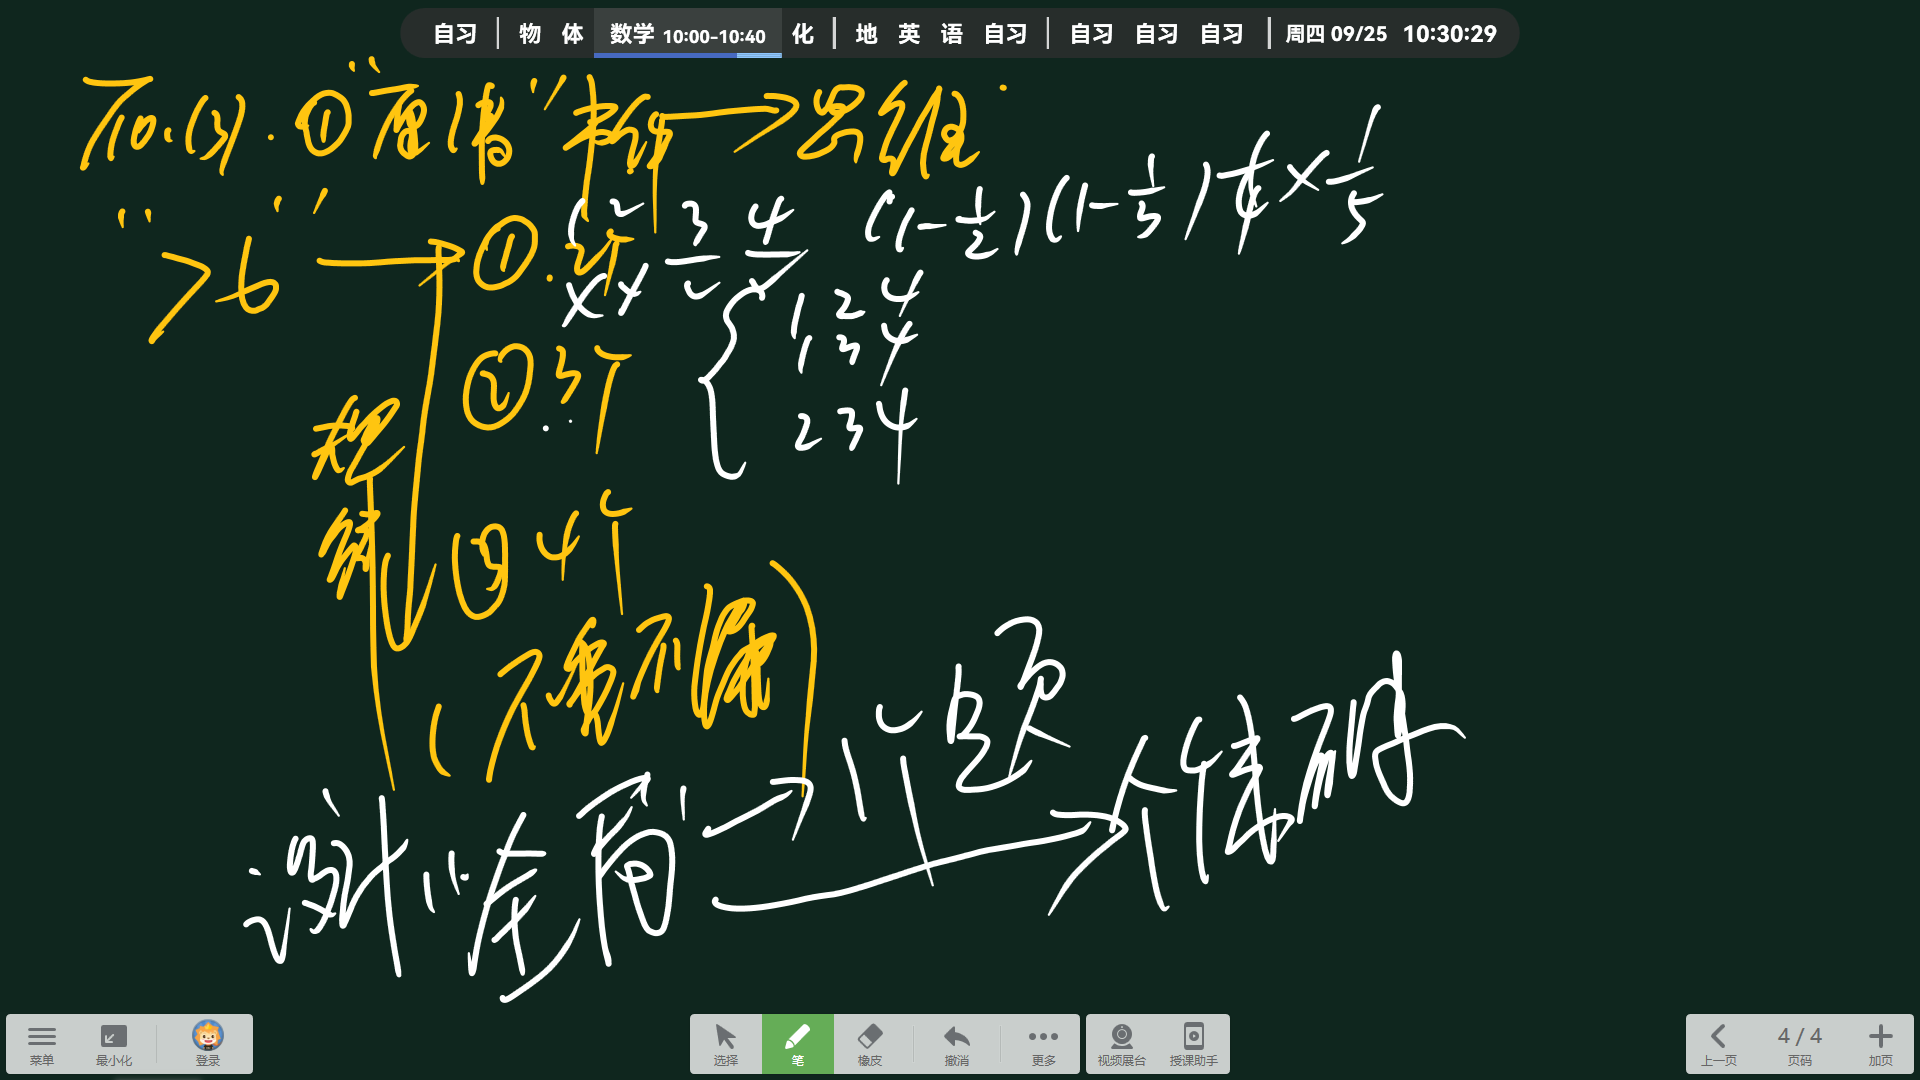 自习 | 物 体 数学 10:00-10:40 化 | 地 英 语 自习 | 自习 自习 自习 | 周四 09/25 10:30:29
T10.(3).①"厘清" → 思维
">6" → ①.2个
(1-1/2)(1-1/3)
×1/5
3 4
②3个
1 2 4
1 3 4
2 3 4
③4个
(不重不漏)
设计"全局" → 个题
→
菜单 最小化 登录 选择 笔 橡皮 撤消 更多 视频展台 授课助手 上一页 4 / 4 页码 加页